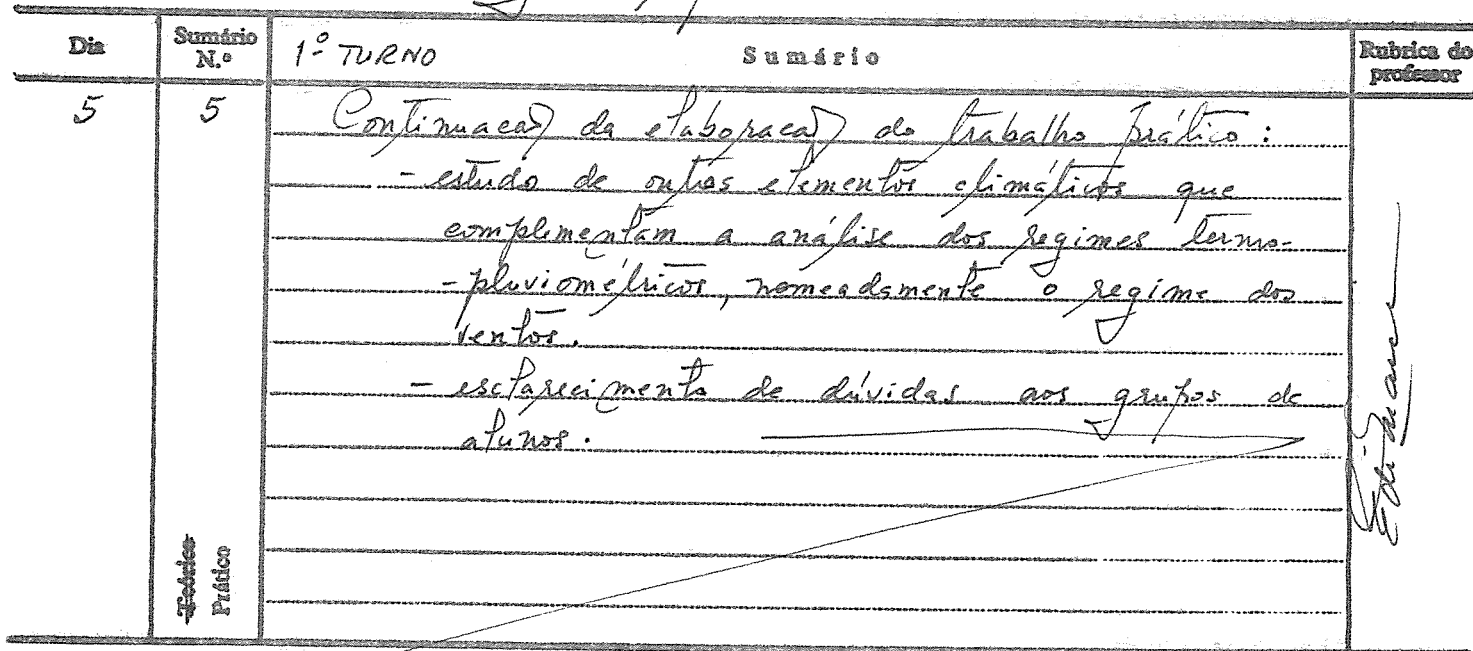 Dia Sumário N.º 1º TURNO Sumário Rubrica do professor
5 5 Continuação da elaboração do trabalho prático:
- estudo de outros elementos climáticos que
complementam a análise dos regimes termo-
-pluviométricos, nomeadamente o regime dos
ventos.
- esclarecimento de dúvidas aos grupos de
alunos.
Teórico
Prático